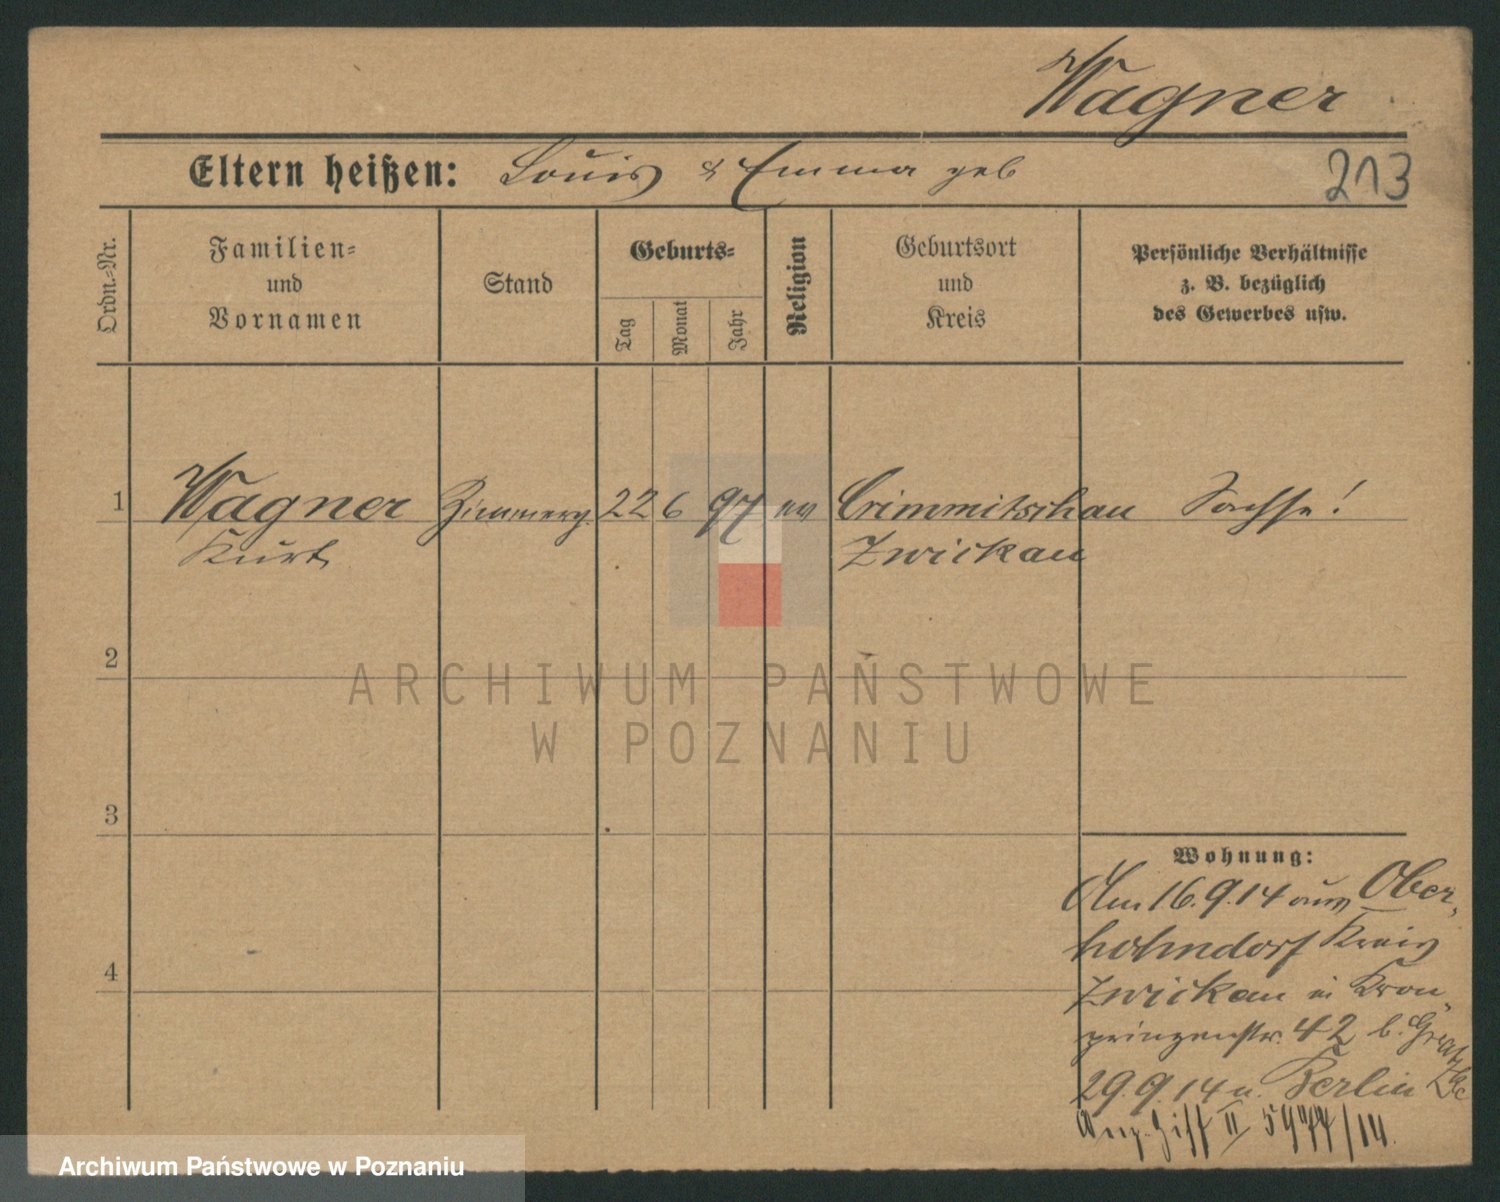 Wagner
Eltern heißen: Louis & Emma geb
213
Ordn.-Nr.
Familien-
und
Vornamen
Stand
Geburts-
Tag
Monat
Jahr
Religion
Geburtsort
und
Kreis
Persönliche Verhältnisse
z. B. bezüglich
des Gewerbes usw.
1 Wagner Zimmerg. 22 6 97 ev Crimmitschau Sachse!
Kurt Zwickau
2
3
4
ARCHIWUM PAŃSTWOWE
W POZNANIU
Wohnung:
Am 16.9.14 aus Ober-
hohndorf Kreis
Zwickau in Kron-
prinzenstr. 42 b.
29.9.14 n. Berlin
II 5977/14.
Archiwum Państwowe w Poznaniu